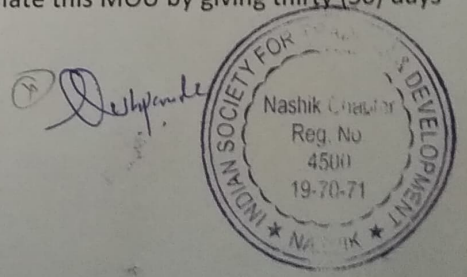 this MOU by giving thirty (30) days
Deshpande
INDIAN SOCIETY FOR & DEVELOPMENT
Nashik Chapter
Reg. No
4500
19-70-71
★ NASHIK ★